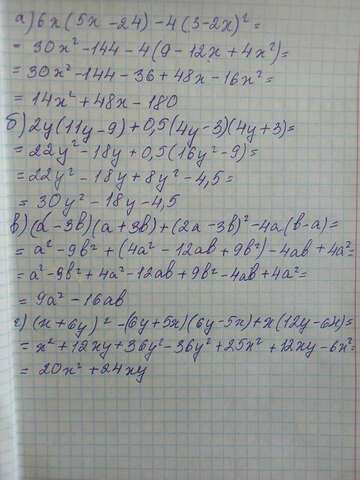 а) 6x(5x - 24) - 4(3 - 2x)² =
= 30x² - 144 - 4(9 - 12x + 4x²) =
= 30x² - 144 - 36 + 48x - 16x² =
= 14x² + 48x - 180
б) 2y(11y - 9) + 0,5(4y - 3)(4y + 3) =
= 22y² - 18y + 0,5(16y² - 9) =
= 22y² - 18y + 8y² - 4,5 =
= 30y² - 18y - 4,5
в) (a - 3b)(a + 3b) + (2a - 3b)² - 4a(b - a) =
= a² - 9b² + (4a² - 12ab + 9b²) - 4ab + 4a² =
= a² - 9b² + 4a² - 12ab + 9b² - 4ab + 4a² =
= 9a² - 16ab
г) (x + 6y)² - (6y + 5x)(6y - 5x) + x(12y - 6x) =
= x² + 12xy + 36y² - 36y² + 25x² + 12xy - 6x² =
= 20x² + 24xy